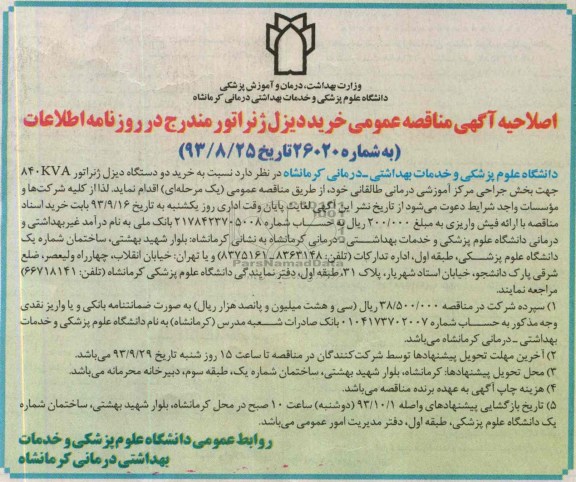 وزارت بهداشت، درمان و آموزش پزشکی
دانشگاه علوم پزشکی و خدمات بهداشتی درمانی کرمانشاه
اصلاحیه آگهی مناقصه عمومی خرید دیزل ژنراتور مندرج در روزنامه اطلاعات
(به شماره ۲۶۰۲۰ تاریخ ۹۳/۸/۲۵)
دانشگاه علوم پزشکی و خدمات بهداشتی ـ درمانی کرمانشاه در نظر دارد نسبت به خرید دو دستگاه دیزل ژنراتور ۸۴۰KVA
جهت بخش جراحی مرکز آموزشی درمانی طالقانی خود، از طریق مناقصه عمومی (یک مرحله‌ای) اقدام نماید. لذا از کلیه شرکت‌ها و
مؤسسات واجد شرایط دعوت می‌شود از تاریخ نشر این آگهی لغایت پایان وقت اداری روز یکشنبه به تاریخ ۹۳/۹/۱۶ بابت خرید اسناد
مناقصه با ارائه فیش واریزی به مبلغ ۲۰۰/۰۰۰ ریال به حساب شماره ۲۱۷۸۴۲۳۷۰۵۰۰۸ بانک ملی به نام درآمد غیربهداشتی و
درمانی دانشگاه علوم پزشکی و خدمات بهداشتی ـ درمانی کرمانشاه به نشانی کرمانشاه: بلوار شهید بهشتی، ساختمان شماره یک
دانشگاه علوم پزشکی، طبقه اول، اداره تدارکات (تلفن: ۸۳۶۳۱۴۸ـ۸۳۷۵۱۶۱) و یا تهران: خیابان انقلاب، چهارراه ولیعصر، ضلع
شرقی پارک دانشجو، خیابان استاد شهریار، پلاک ۳۱، طبقه اول، دفتر نمایندگی دانشگاه علوم پزشکی کرمانشاه (تلفن: ۶۶۷۱۸۱۴۱)
مراجعه نمایند.
۱) سپرده شرکت در مناقصه ۳۸/۵۰۰/۰۰۰ ریال (سی و هشت میلیون و پانصد هزار ریال) به صورت ضمانتنامه بانکی و یا واریز نقدی
وجه مذکور به حساب شماره ۰۱۰۴۱۷۳۷۰۲۰۰۷ بانک صادرات شعبه مدرس (کرمانشاه) به نام دانشگاه علوم پزشکی و خدمات
بهداشتی ـ درمانی کرمانشاه می‌باشد.
۲) آخرین مهلت تحویل پیشنهادها توسط شرکت‌کنندگان در مناقصه تا ساعت ۱۵ روز شنبه تاریخ ۹۳/۹/۲۹ می‌باشد.
۳) محل تحویل پیشنهادها: کرمانشاه، بلوار شهید بهشتی، ساختمان شماره یک، طبقه سوم، دبیرخانه محرمانه می‌باشد.
۴) هزینه چاپ آگهی به عهده برنده مناقصه می‌باشد.
۵) تاریخ بازگشایی پیشنهادهای واصله ۹۳/۱۰/۱ (دوشنبه) ساعت ۱۰ صبح در محل کرمانشاه، بلوار شهید بهشتی، ساختمان شماره
یک دانشگاه علوم پزشکی، طبقه اول، دفتر مدیریت امور عمومی می‌باشد.
روابط عمومی دانشگاه علوم پزشکی و خدمات
بهداشتی درمانی کرمانشاه
ParsNamadData